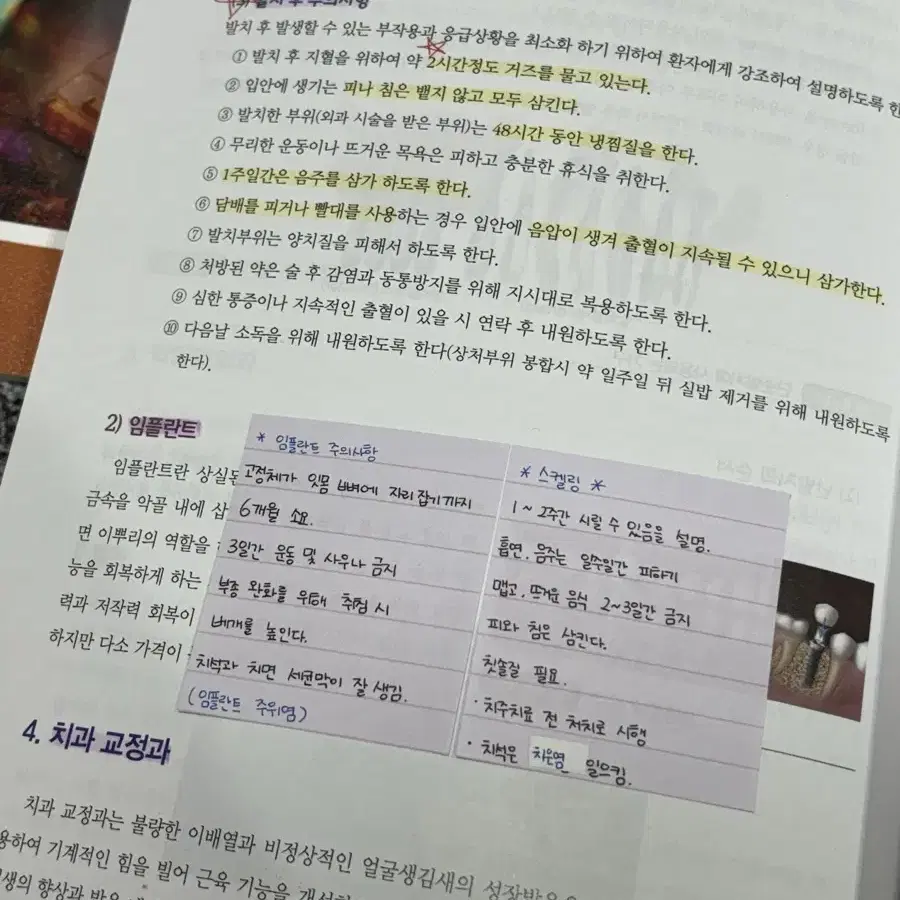 발치 후 주의사항
발치 후 발생할 수 있는 부작용과 응급상황을 최소화 하기 위하여 환자에게 강조하여 설명하도록 한
① 발치 후 지혈을 위하여 약 2시간정도 거즈를 물고 있는다.
② 입안에 생기는 피나 침은 뱉지 않고 모두 삼킨다.
③ 발치한 부위(외과 시술을 받은 부위)는 48시간 동안 냉찜질을 한다.
④ 무리한 운동이나 뜨거운 목욕은 피하고 충분한 휴식을 취한다.
⑤ 1주일간은 음주를 삼가 하도록 한다.
⑥ 담배를 피거나 빨대를 사용하는 경우 입안에 음압이 생겨 출혈이 지속될 수 있으니 삼가한다.
⑦ 발치부위는 양치질을 피해서 하도록 한다.
⑧ 처방된 약은 술 후 감염과 동통방지를 위해 지시대로 복용하도록 한다.
⑨ 심한 통증이나 지속적인 출혈이 있을 시 연락 후 내원하도록 한다.
⑩ 다음날 소독을 위해 내원하도록 한다(상처부위 봉합시 약 일주일 뒤 실밥 제거를 위해 내원하도록
한다).
2) 임플란트
임플란트란 상실된
금속을 악골 내에 삽
면 이뿌리의 역할을
능을 회복하게 하는
력과 저작력 회복이
하지만 다소 가격이
* 임플란트 주의사항
고정체가 잇몸 뼈에 자리 잡기까지
6개월 소요.
3일간 운동 및 사우나 금지
부종 완화를 위해 취침 시
베개를 높인다.
치석과 치면 세균막이 잘 생김.
(임플란트 주위염)
* 스켈링 *
1~2주간 시릴 수 있음을 설명.
흡연, 음주는 일주일간 피하기
맵고, 뜨거운 음식 2~3일간 금지
피와 침은 삼킨다.
칫솔질 필요.
· 치주치료 전 처치로 시행
· 치석은 치은염 일으킴.
4. 치과 교정과
치과 교정과는 불량한 이배열과 비정상적인 얼굴생김새의 성장발육을
용하여 기계적인 힘을 빌어 근육 기능을